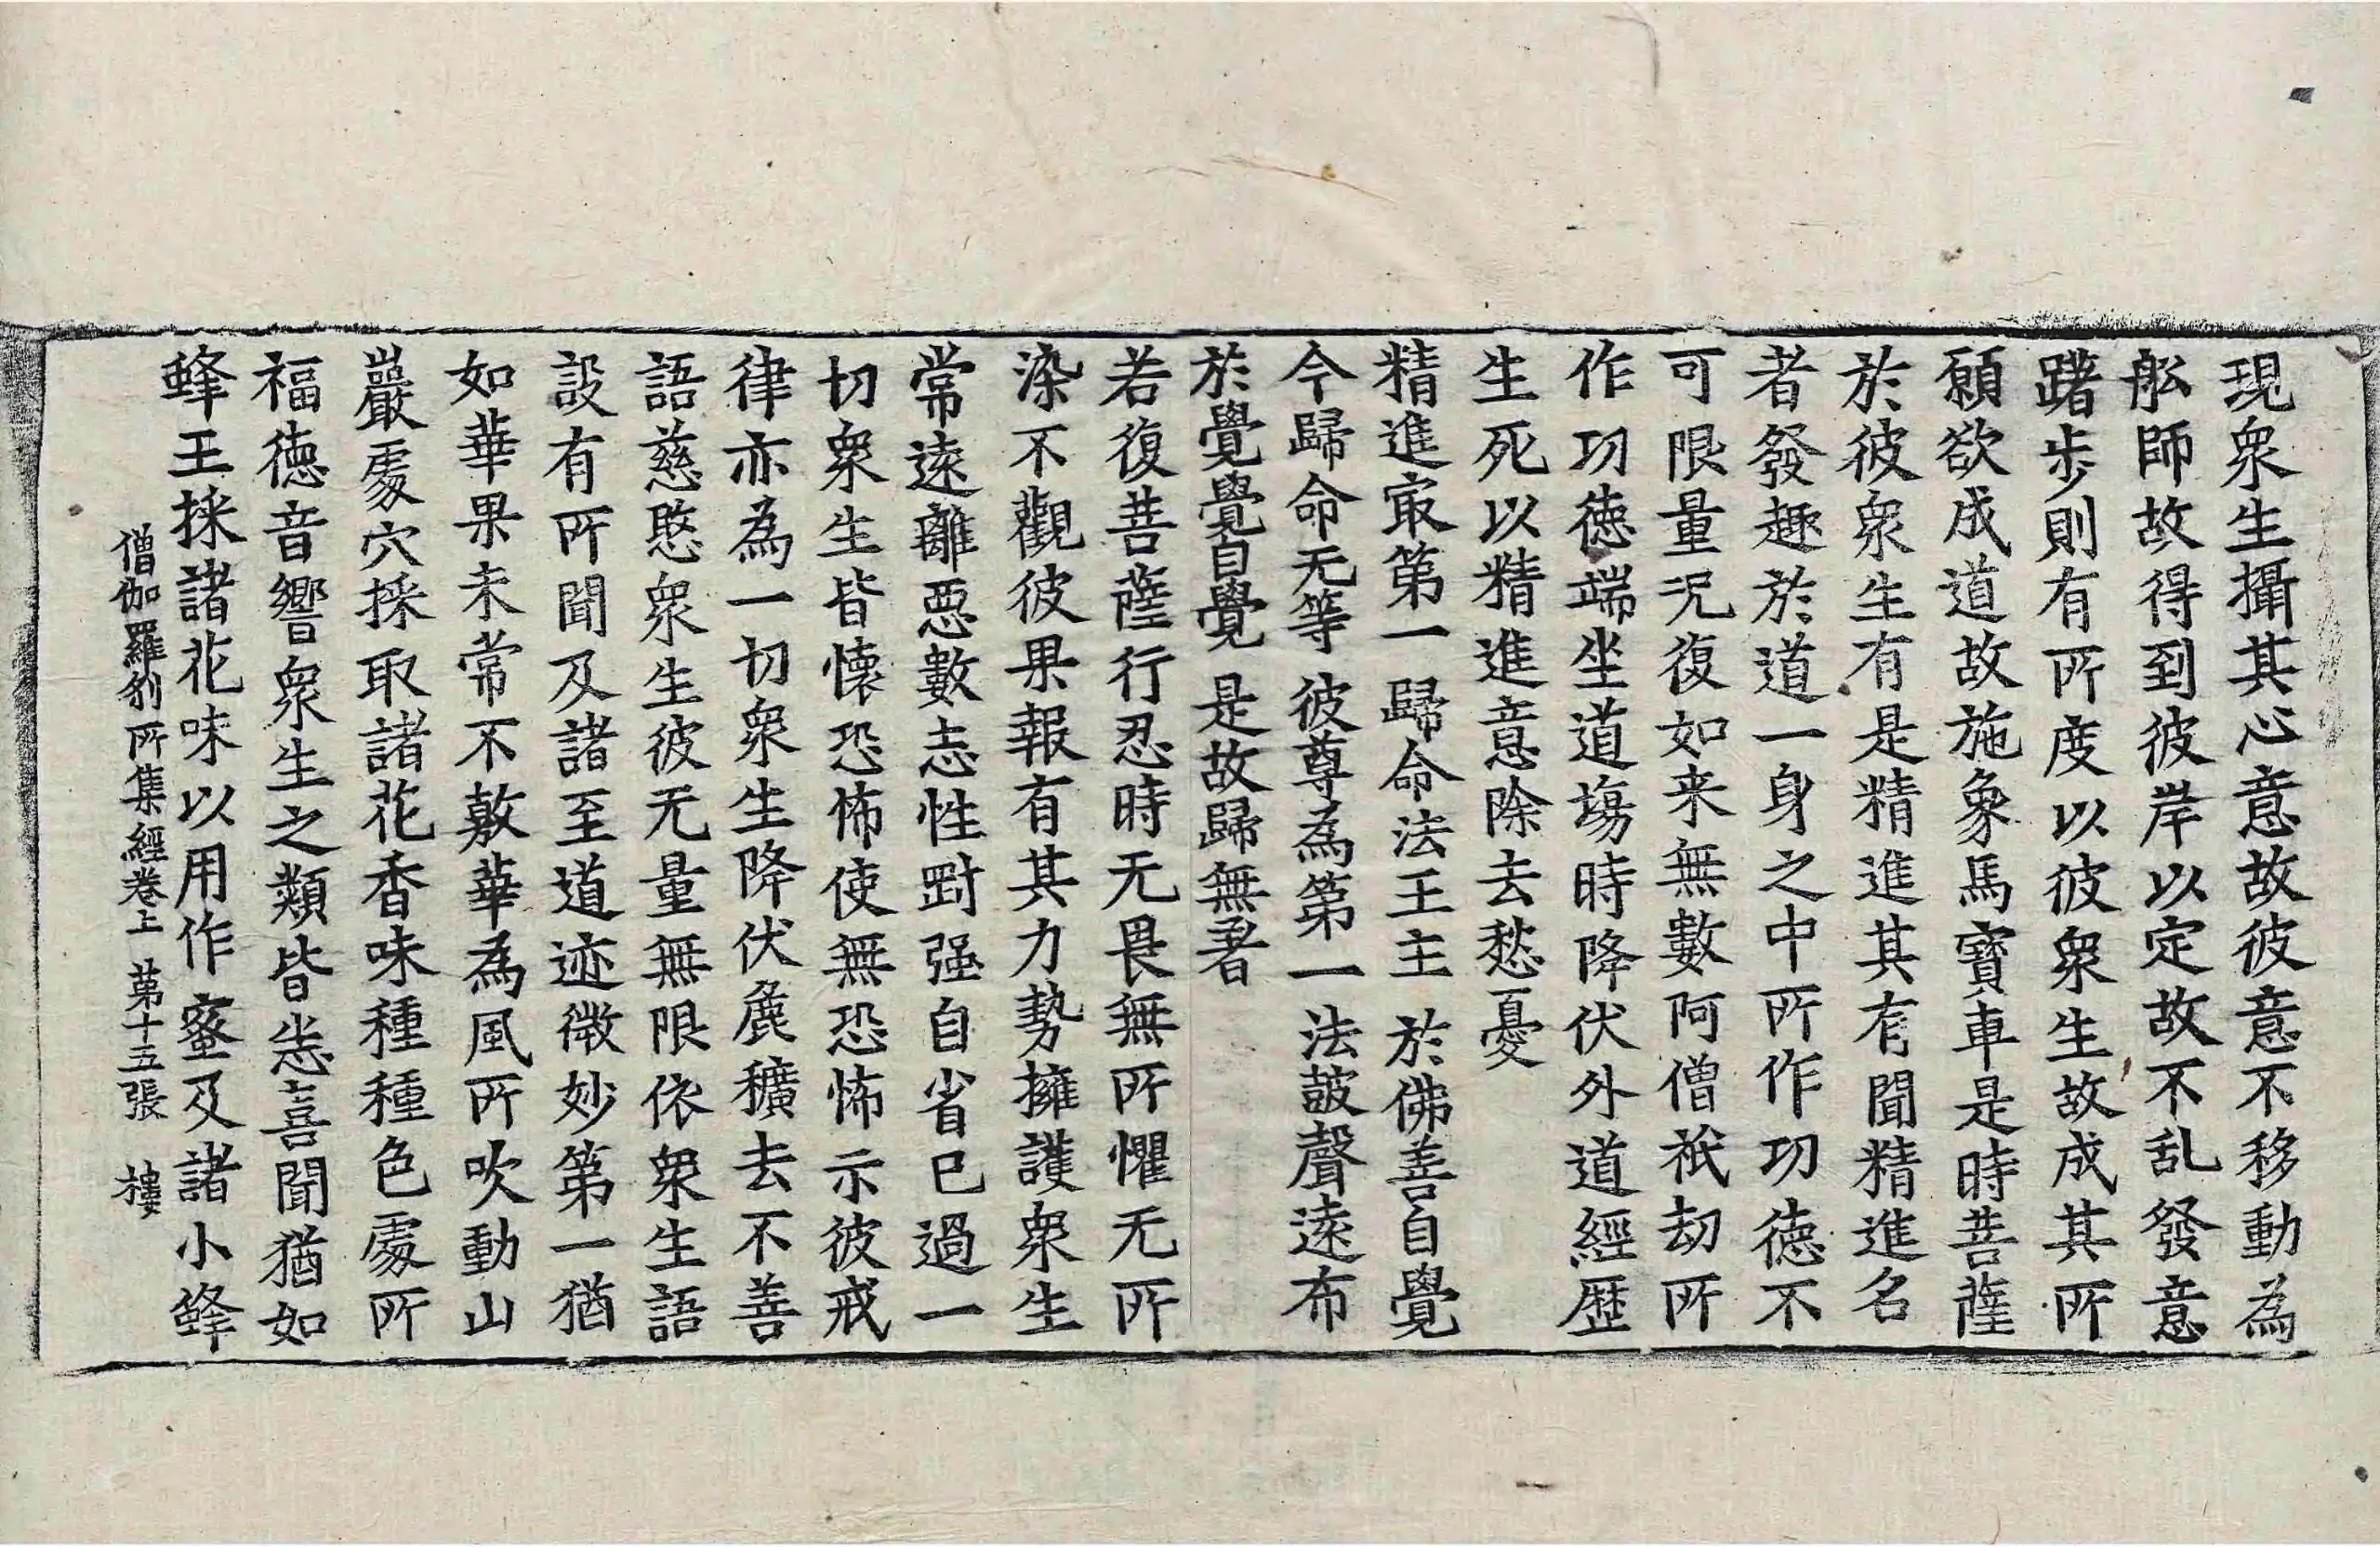 現衆生攝其心意故彼意不移動為
舩師故得到彼岸以定故不乱發意
躇步則有所度以彼衆生故成其所
願欲成道故施象馬寶車是時菩薩
於彼衆生有是精進其有聞精進名
者發趣於道一身之中所作功德不
可限量况復如来無數阿僧祇劫所
作功德端坐道場時降伏外道經歷
生死以精進意除去愁憂
精進㝡第一 歸命法王主 於佛善自覺
今歸命无等 彼尊為第一 法皷聲遠布
於覺覺自覺 是故歸無著
若復菩薩行忍時无畏無所懼无所
染不觀彼果報有其力勢擁護衆生
常遠離惡數忘性㓻强自省已過一
切衆生皆懷恐怖使無恐怖示彼戒
律亦為一切衆生降伏麁獷去不善
語慈愍衆生彼无量無限依衆生語
設有所聞及諸至道迹微妙第一猶
如華果未常不敷華為風所吹動山
巖處穴採取諸花香味種種色處所
福德音響衆生之類皆悉喜聞猶如
蜂王採諸花味以用作蜜及諸小蜂
僧伽羅剎所集經卷上 第十五張 樓